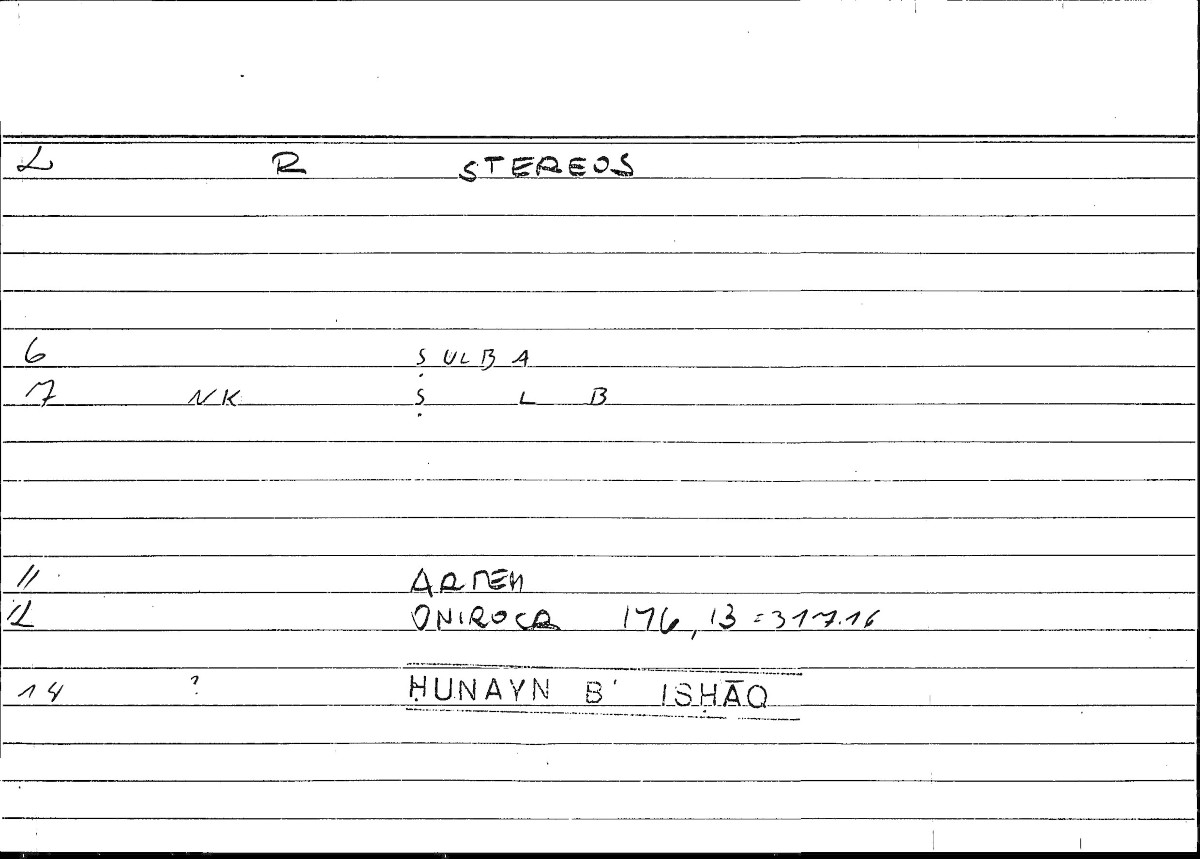 L R STEREOS
6 ṢULBA
7 NK Ṣ L B
11 ARTEM
12 ONIROCR 176,13 = 317.16
14 ? ḤUNAYN B' ISḤĀQ